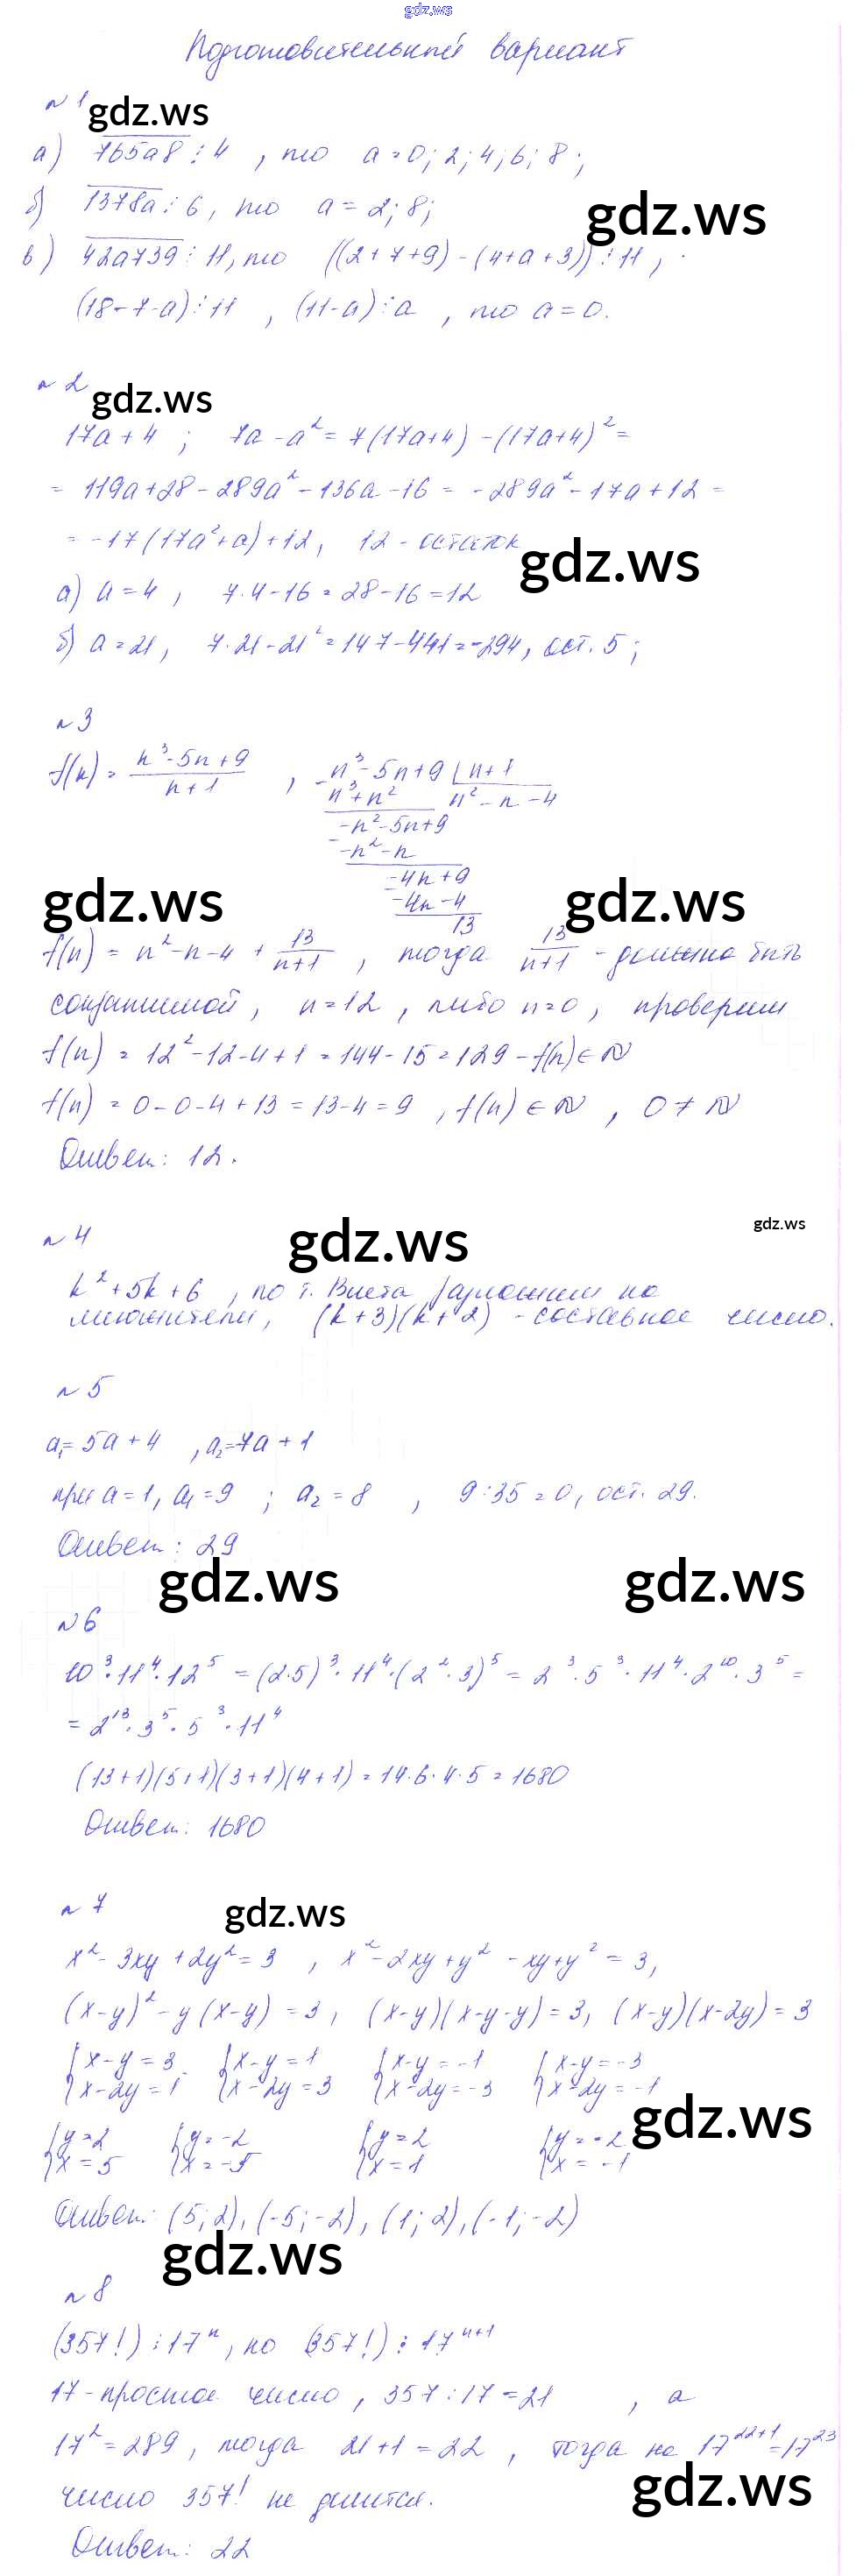 gdz.ws
Подготовительный вариант
№ 1 gdz.ws
а) 765a8 ⋮ 4 , то a = 0; 2; 4; 6; 8;
б) 1378a ⋮ 6, то a = 2; 8;
gdz.ws
в) 42a739 ⋮ 11, то ((2+7+9) - (4+a+3)) ⋮ 11,
(18-7-a) ⋮ 11 , (11-a) ⋮ a , то a = 0.
№ 2 gdz.ws
17a + 4 ; 7a - a² = 7(17a+4) - (17a+4)² =
= 119a + 28 - 289a² - 136a - 16 = -289a² - 17a + 12 =
= -17(17a² + a) + 12, 12 - остаток
gdz.ws
а) a = 4 , 7·4 - 16 = 28 - 16 = 12
б) a = 21, 7·21 - 21² = 147 - 441 = -294, ост. 5;
№ 3
f(n) = (n³ - 5n + 9)/(n + 1) , n³ - 5n + 9 | n + 1
n³ + n² n² - n - 4
-n² - 5n + 9
-n² - n
-4n + 9
-4n - 4
13
gdz.ws gdz.ws
f(n) = n² - n - 4 + 13/(n+1) , тогда 13/(n+1) - должна быть
сократимой, n = 12 , либо n = 0 , проверим
f(n) = 12² - 12 - 4 + 1 = 144 - 15 = 129 - f(n) ∈ N
f(n) = 0 - 0 - 4 + 13 = 13 - 4 = 9 , f(n) ∈ N , 0 ≠ N
Ответ: 12.
№ 4 gdz.ws gdz.ws
k² + 5k + 6 , по т. Виета разложим на
множители, (k + 3)(k + 2) - составное число.
№ 5
a₁ = 5a + 4 , a₂ = 7a + 1
при a = 1, a₁ = 9 ; a₂ = 8 , 9 : 35 = 0, ост. 29.
Ответ: 29
gdz.ws gdz.ws
№ 6
10³ · 11⁴ · 12⁵ = (2·5)³ · 11⁴ · (2² · 3)⁵ = 2³ · 5³ · 11⁴ · 2¹⁰ · 3⁵ =
= 2¹³ · 3⁵ · 5³ · 11⁴
(13+1)(5+1)(3+1)(4+1) = 14·6·4·5 = 1680
Ответ: 1680
№ 7 gdz.ws
x² - 3xy + 2y² = 3 , x² - 2xy + y² - xy + y² = 3,
(x-y)² - y(x-y) = 3, (x-y)(x-y-y) = 3, (x-y)(x-2y) = 3
{x-y = 3 {x-y = 1 {x-y = -1 {x-y = -3
{x-2y = 1 {x-2y = 3 {x-2y = -3 {x-2y = -1
gdz.ws
{y = 2 {y = -2 {y = 2 {y = -2
{x = 5 {x = -5 {x = 1 {x = -1
Ответ: (5; 2), (-5; -2), (1; 2), (-1; -2)
gdz.ws
№ 8
(357!) ⋮ 17ⁿ, но (357!) ⋮ 17ⁿ⁺¹
17 - простое число , 357 : 17 = 21 , а
17² = 289 , тогда 21 + 1 = 22 , тогда на 17²²⁺¹ = 17²³
gdz.ws
число 357! не делится.
Ответ: 22